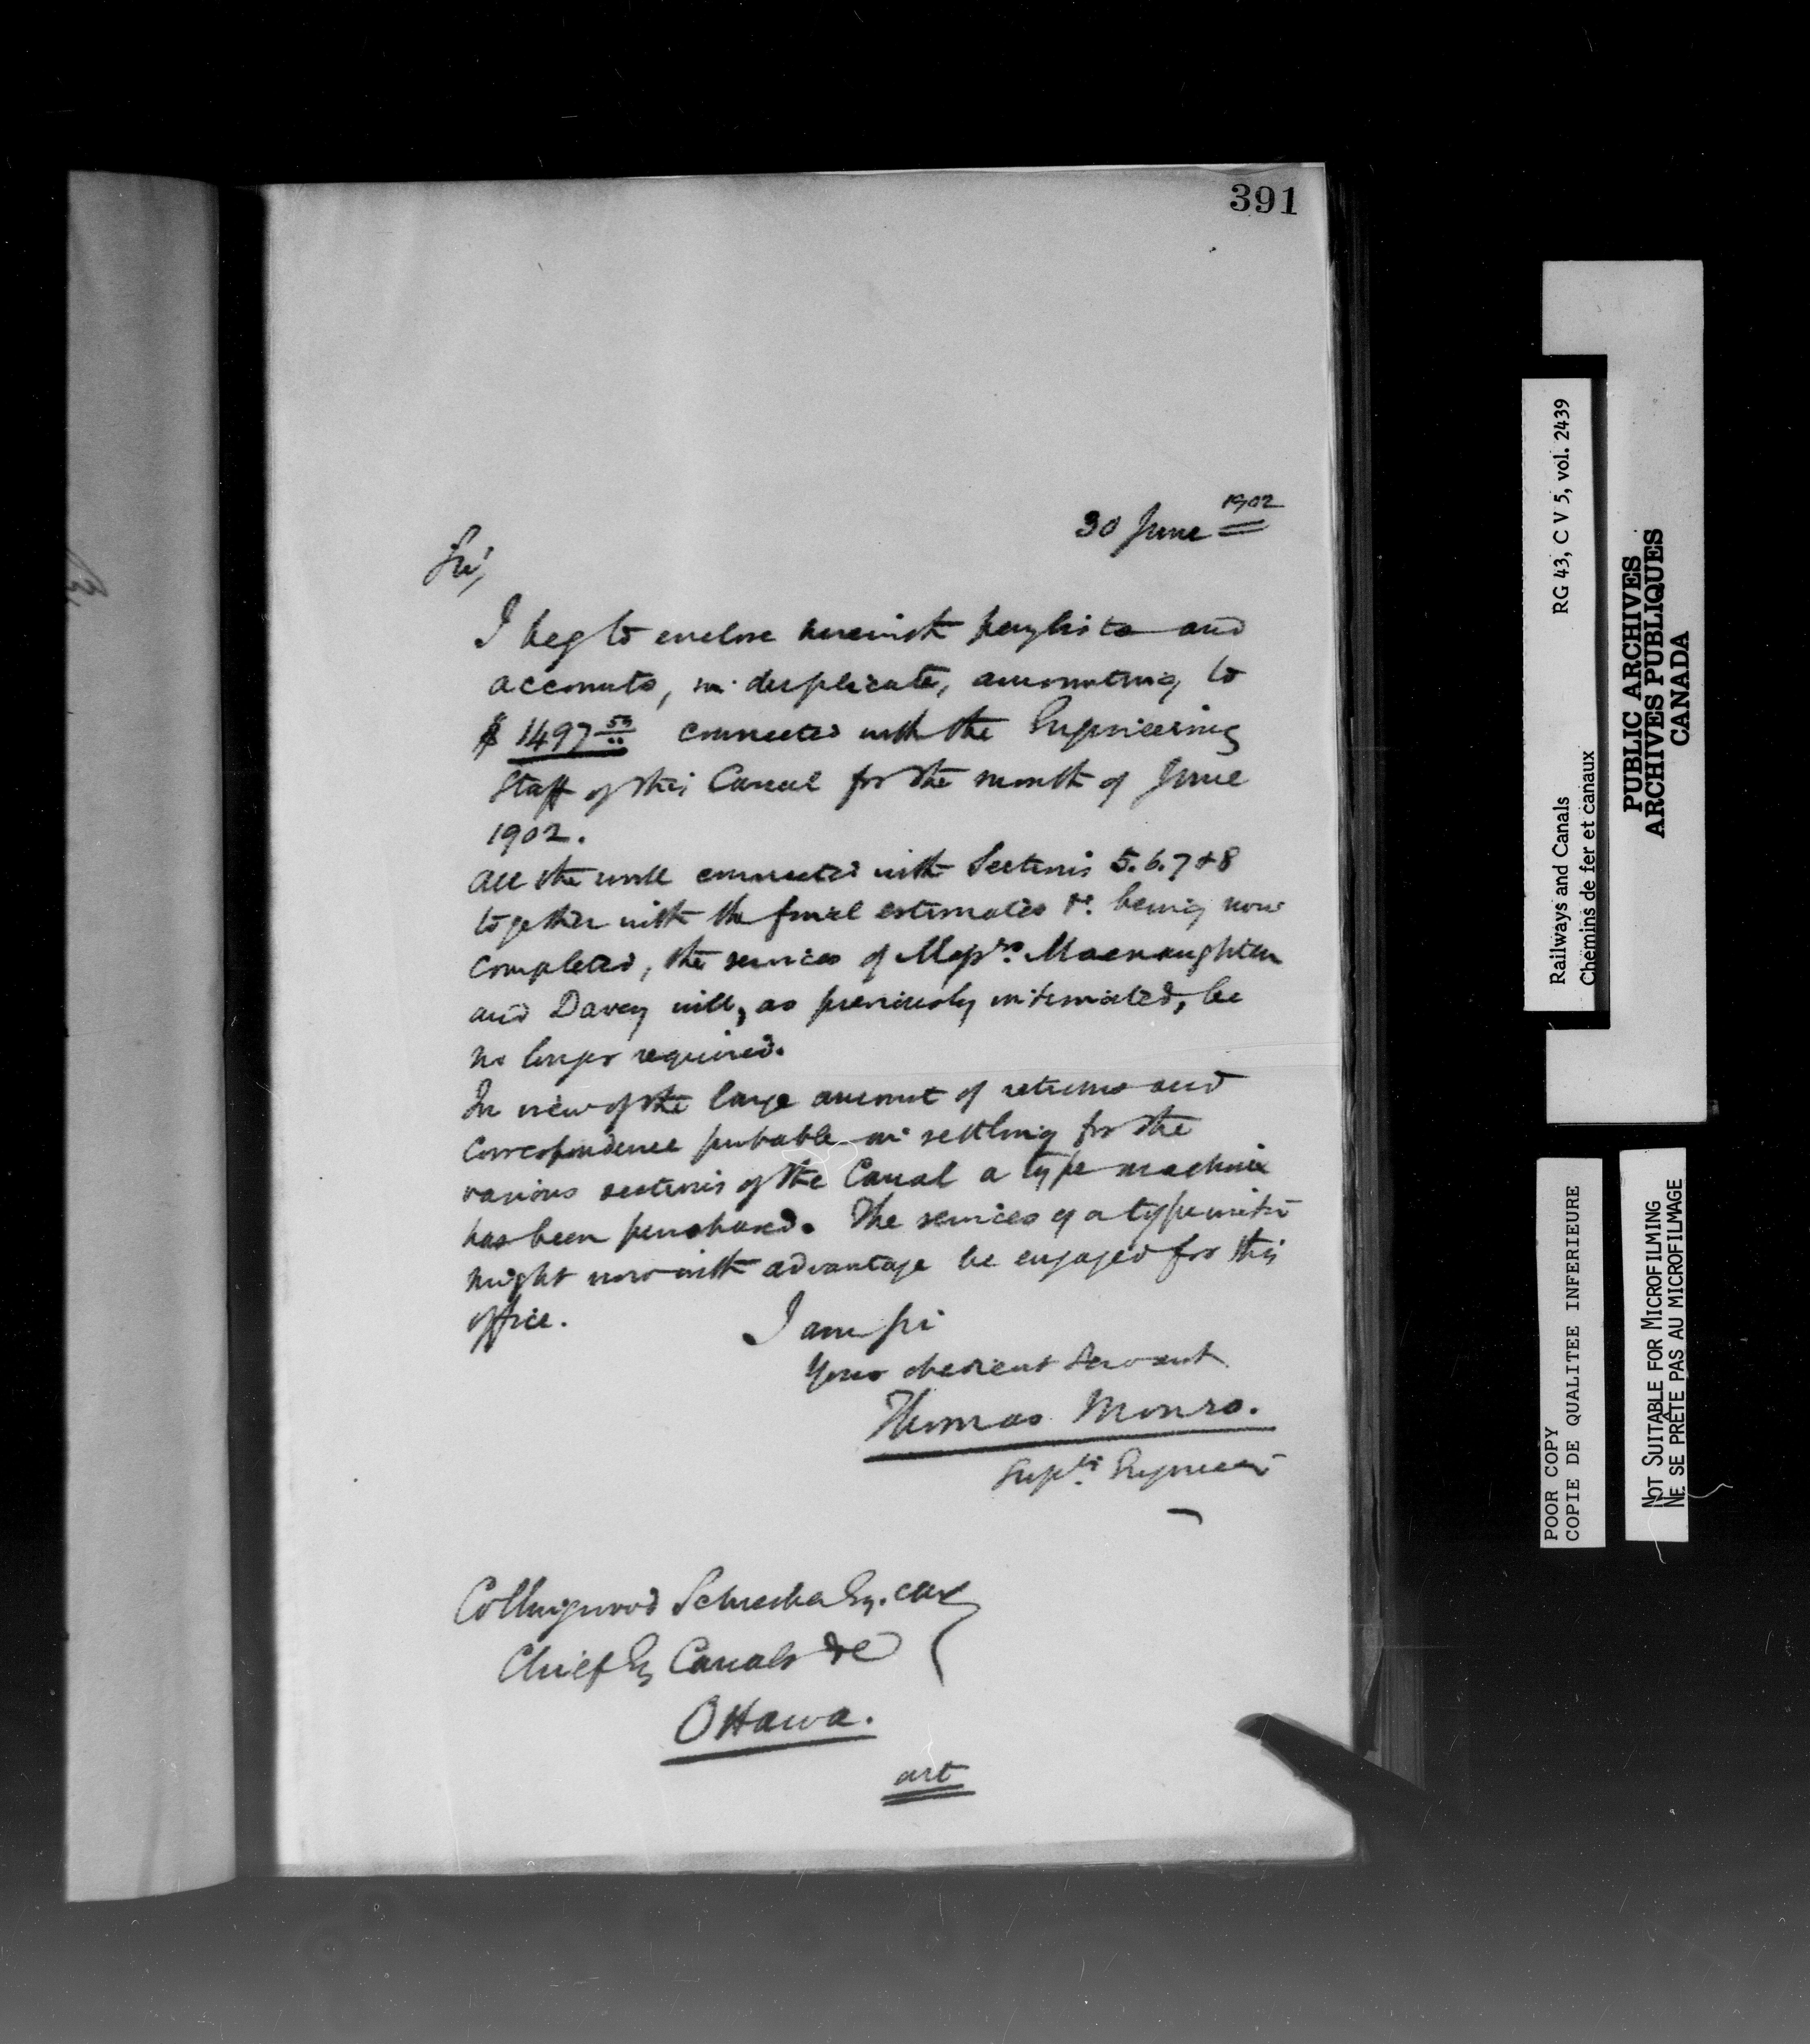 391
30 June 1902
Sir,
I beg to enclose herewith paylists and
accounts, in duplicate, amounting to
$ 1497 53 connected with the Engineering
Staff of this Canal for the month of June
1902.
All the work connected with Sections 5. 6. 7 & 8
together with the final estimates &c. being now
completed, the services of Messrs. Macnaughton
and Davey will, as previously intimated, be
no longer required.
In view of the large amount of returns and
correspondence probable in settling for the
various sections of the Canal a type machine
has been purchased. The services of a typewriter
might now with advantage be engaged for this
office.
I am Sir
Your obedient Servant
Thomas Monro.
Suptg. Engineer
Collingwood Schreiber Esq. CMG
Chief Eng Canals &c
Ottawa.
Railways and Canals RG 43, C V 5, vol. 2439
Chemins de fer et canaux
PUBLIC ARCHIVES
ARCHIVES PUBLIQUES
CANADA
POOR COPY
COPIE DE QUALITEE INFERIEURE
NOT SUITABLE FOR MICROFILMING
NE SE PRÊTE PAS AU MICROFILMAGE